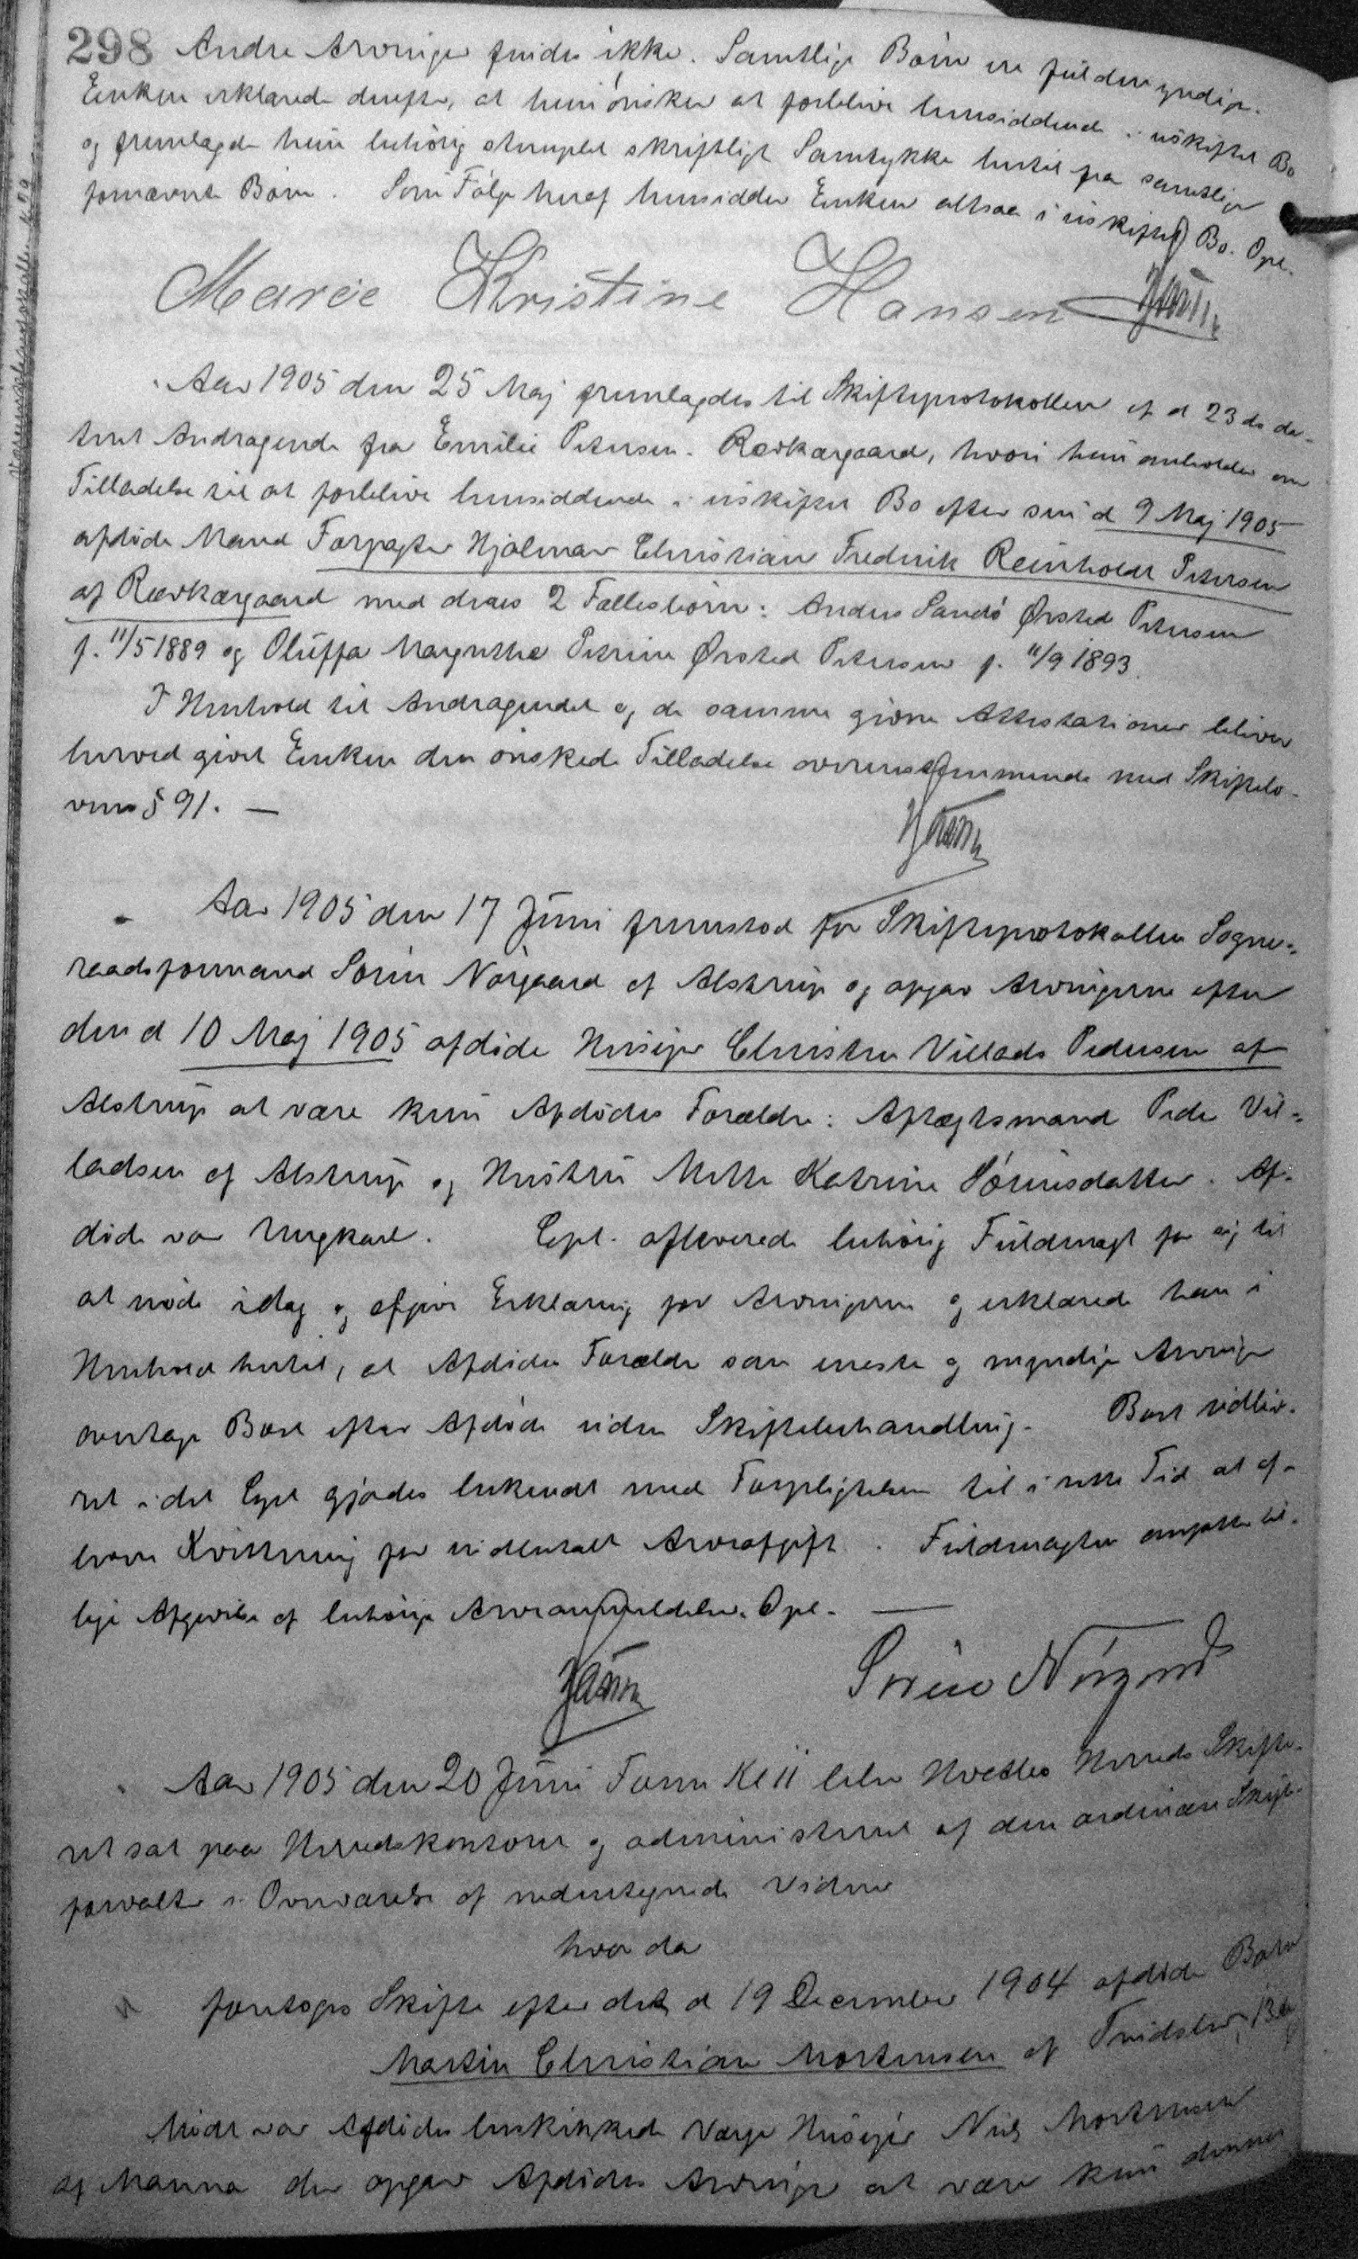 298 Andre Arvinger findes ikke. Samtlige Børn ere fuldmyndige.
Enken erklærede derefter, at hun ønsker at forblive hensiddende i uskiftet Bo
og fremlagde hun behørig stemplet skriftligt Samtykke hertil fra samtlige
fornævnte Børn. Som Følge heraf hensidder Enken altsaa i uskiftet Bo. Opl.
Marie Kristine Hansen
Aar 1905 den 25 Maj fremlagdes til Skifteprotokollen et d 23 ds da-
teret Andragende fra Emilie Petersen. Rævkærgaard, hvori hun anholder om
Tilladelse til at forblive hensiddende i uskiftet Bo efter sin d 9 Maj 1905
afdøde Mand Forpagter Hjalmar Christian Frederik Reinholdt Petersen
af Rævkærgaard med deres 2 Fællesbørn: Anders Sandø Ørsted Petersen
f. 11/5 1889 og Oluffa Margrethe Petrine Ørsted Petersen f. 11/9 1893.
I Henhold til Andragendet og de samme givne Attestationer bliver
herved givet Enken den ønskede Tilladelse overensstemmende med Skiftelo-
vens § 91. —
Aar 1905 den 17 Juni fremstod for Skifteprotokollen Sogne-
raadsformand Søren Nørgaard af Alstrup og opgav Arvingerne efter
den d 10 Maj 1905 afdøde Husejer Christen Villads Pedersen af
Alstrup at være kun Afdødes Forældre: Aftægtsmand Peder Vil-
ladsen af Alstrup og Hustru Mette Katrine Sørensdatter. Af-
døde var Ungkarl. Cpt. afleverede behørig Fuldmagt for sig til
at møde idag og afgive Erklæring for Arvingerne og erklærede han i
Henhold hertil, at Afdødes Forældre som eneste og myndige Arvinger
overtage Boet efter Afdøde uden Skiftebehandling. Boet udleve-
ret idet Cpt gjordes bekendt med Forpligtelsen til i rette Tid at af-
levere Kvittering for indbetalt Arveafgift. Fuldmagten omfatter til-
lige Afgivelse af behørige Arveanmeldelse. Opl. —
Søren Nørgaard
Aar 1905 den 20 Juni Form Kl 11 blev Hvetbo Herreds Skifte-
ret sat paa Herredskontoret og administreret af den ordinære Skifte-
forvalter i Overværelse af undertegnede Vidner
hvor da
foretoges Skifte efter den d 19 December 1904 afdøde
Martin Christian Mortensen af
Mødt var Afdødes beskikkede Værge Husejer Niels Mortensen
af Manna der opgav Afdødes Arvinger at være kun dennes